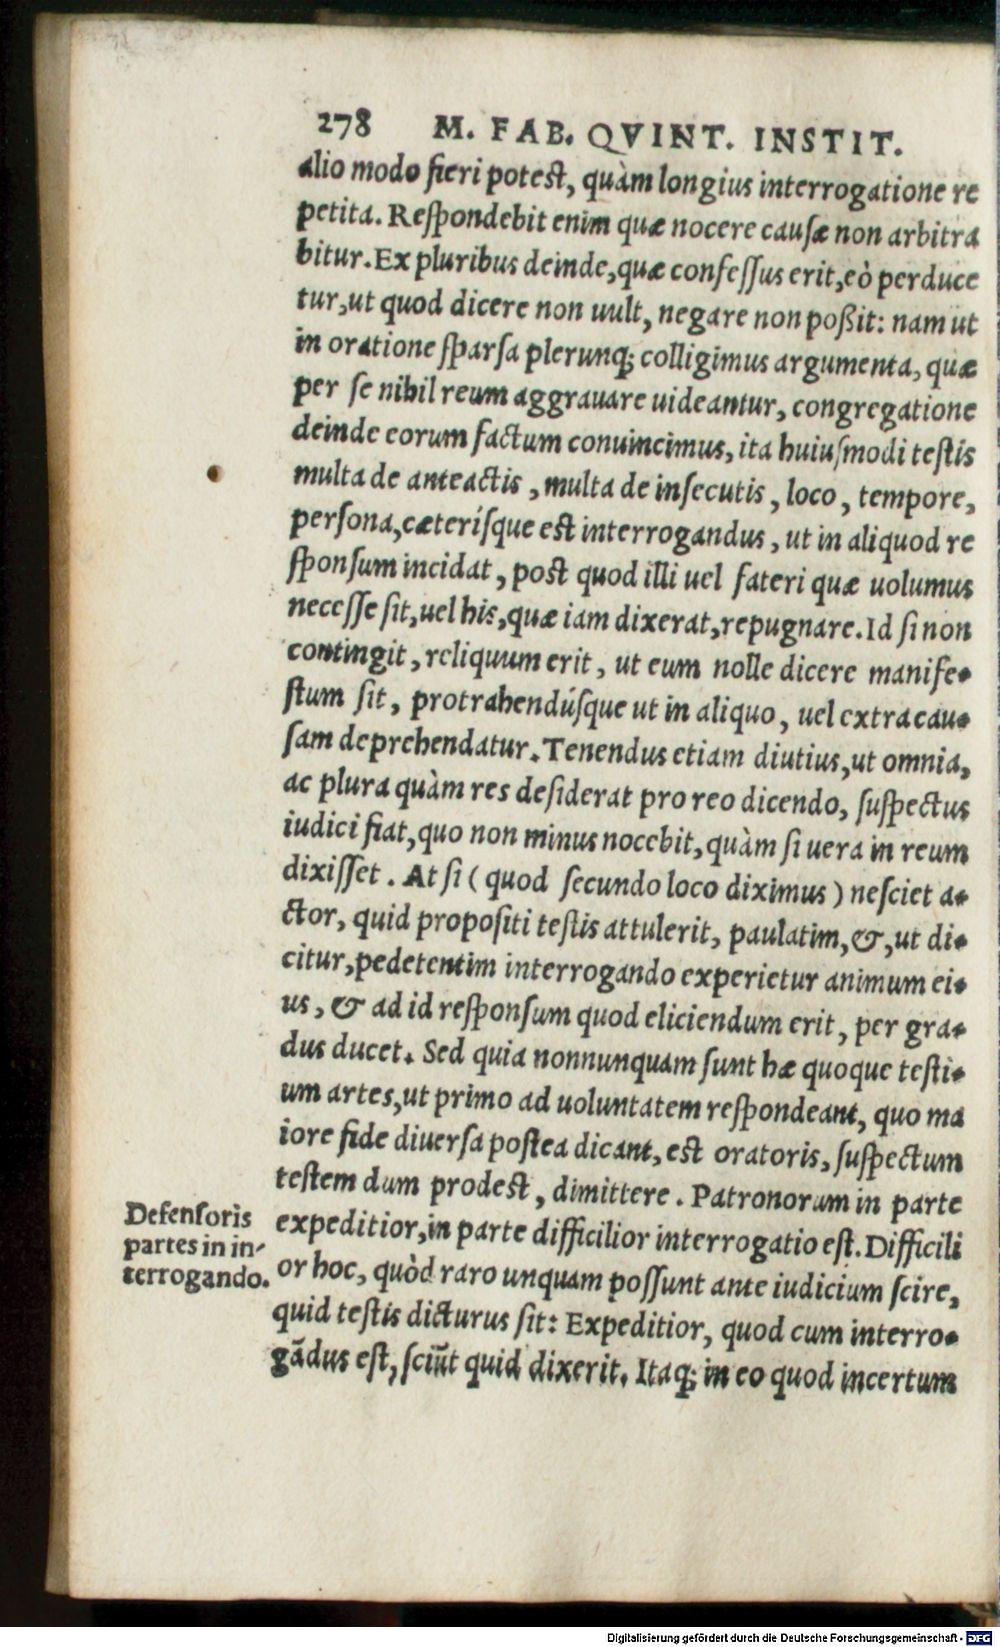 278 M. FAB. QVINT. INSTIT.
alio modo fieri potest, quàm longius interrogatione re
petita. Respondebit enim quæ nocere causæ non arbitra
bitur. Ex pluribus deinde, quæ confessus erit, eò perduce
tur, ut quod dicere non uult, negare non poßit: nam ut
in oratione sparsa plerunq; colligimus argumenta, quæ
per se nihil reum aggrauare uideantur, congregatione
deinde eorum factum conuincimus, ita huiusmodi testis
multa de anteactis, multa de insecutis, loco, tempore,
persona, cæterísque est interrogandus, ut in aliquod re
sponsum incidat, post quod illi uel fateri quæ uolumus
necesse sit, uel his, quæ iam dixerat, repugnare. Id si non
contingit, reliquum erit, ut eum nolle dicere manife-
stum sit, protrahendúsque ut in aliquo, uel extra cau-
sam deprehendatur. Tenendus etiam diutius, ut omnia,
ac plura quàm res desiderat pro reo dicendo, suspectus
iudici fiat, quo non minus nocebit, quàm si uera in reum
dixisset. At si ( quod secundo loco diximus ) nesciet a-
ctor, quid propositi testis attulerit, paulatim, &, ut di-
citur, pedetentim interrogando experietur animum ei-
us, & ad id responsum quod eliciendum erit, per gra-
dus ducet. Sed quia nonnunquam sunt hæ quoque testi-
um artes, ut primo ad uoluntatem respondeant, quo ma
iore fide diuersa postea dicant, est oratoris, suspectum
testem dum prodest, dimittere. Patronorum in parte
expeditior, in parte difficilior interrogatio est. Difficili
or hoc, quòd raro unquam possunt ante iudicium scire,
quid testis dicturus sit: Expeditior, quod cum interro-
gādus est, sciūt quid dixerit. Itaq; in eo quod incertum
Defensoris
partes in in-
terrogando.
Digitalisierung gefördert durch die Deutsche Forschungsgemeinschaft - DFG